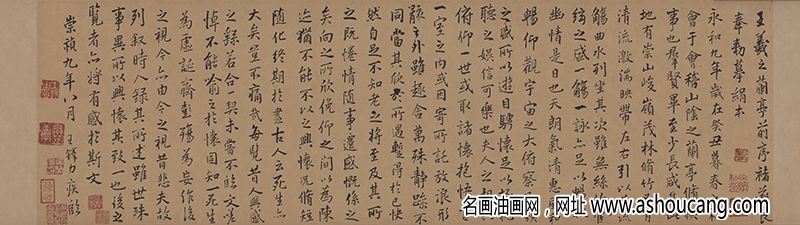 王羲之蘭亭前序褚遂良
奉勅摹絹本
永和九年歲在癸丑暮春
會于會稽山陰之蘭亭脩
事也羣賢畢至少長咸集
地有崇山峻嶺茂林脩竹
清流激湍映帶左右引以
觴曲水列坐其次雖無絲
絃之盛一觴一詠亦足以暢
幽情是日也天朗氣清惠風
暢仰觀宇宙之大俯察
之盛所以遊目騁懷足以極
聽之娛信可樂也夫人之相
俯仰一世或取諸懷抱悟
一室之內或因寄所託放浪形
骸之外雖趣舍萬殊靜躁不
同當其欣於所遇暫得於己快
然自足不知老之將至及其所
之既惓情隨事遷感慨係之
矣向之所欣俛仰之間以為陳
迹猶不能不以之興懷況脩短
隨化終期於盡古人云死生亦
大矣豈不痛哉每覽昔人興感
之錄若合一契未嘗不臨文嗟
悼不能喻之於懷固知一死生
為虛誕齊彭殤為妄作後
之視今亦由今之視昔悲夫故
列叙時人錄其所述雖世殊
事異所以興懷其致一也後之
覽者亦將有感於斯文
崇禎九年八月 王鐸力疾臨
名画油画网，网址 www.ashoucang.com